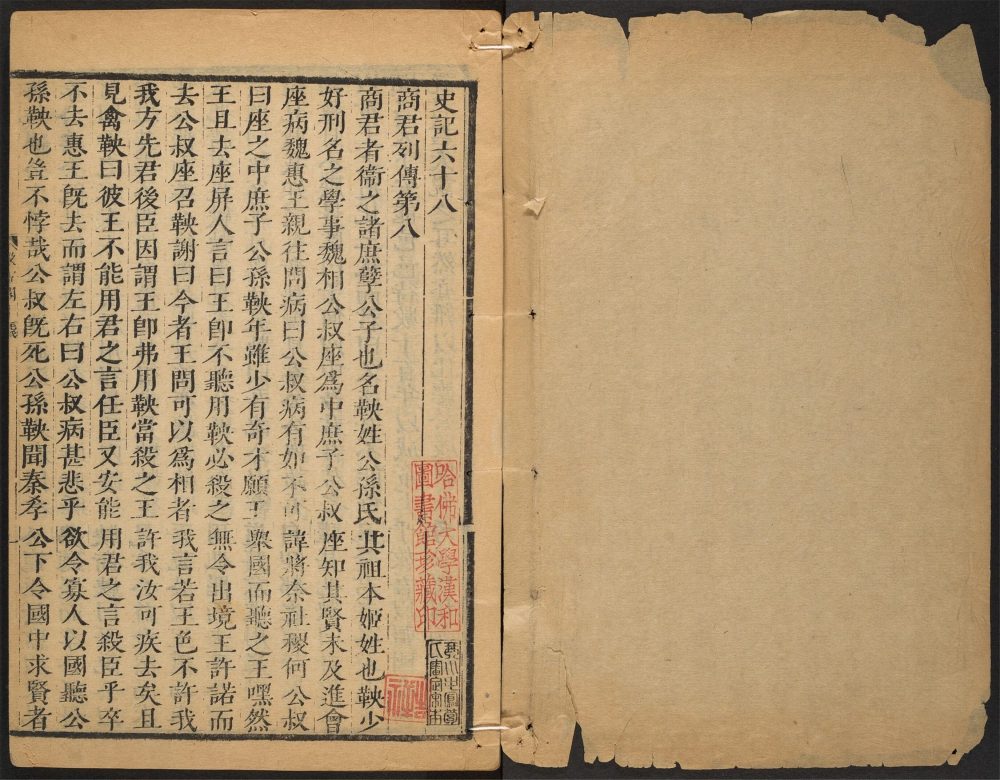 史記六十八
商君列傳第八
商君者衞之諸庶孽公子也名鞅姓公孫氏其祖本姬姓也鞅少
好刑名之學事魏相公叔座爲中庶子公叔座知其賢未及進會
座病魏惠王親往問病曰公叔病有如不可諱將奈社稷何公叔
曰座之中庶子公孫鞅年雖少有奇才願王衆國而聽之王嘿然
王且去座屏人言曰王卽不聽用鞅必殺之無令出境王許諾而
去公叔座召鞅謝曰今者王問可以爲相者我言若王色不許我
我方先君後臣因謂王卽弗用鞅當殺之王許我汝可疾去矣且
見禽鞅曰彼王不能用君之言任臣又安能用君之言殺臣乎卒
不去惠王旣去而謂左右曰公叔病甚悲乎欲令寡人以國聽公
孫鞅也豈不悖哉公叔旣死公孫鞅聞秦孝公下令國中求賢者
哈佛大學漢和
圖書館珍藏印